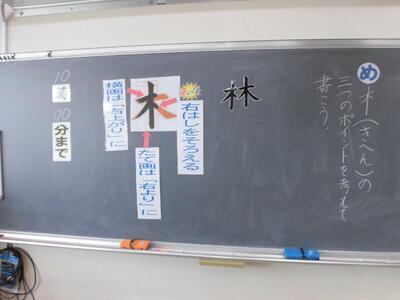 め
木(きへん)の
三つのポイントを考えて
書こう。
林
右はしをそろえる
木
たて画は「右より」に
横画は「右上がり」に
10
時
00
分まで